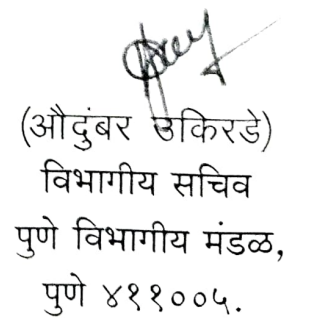 (औदुंबर उकिरडे)
विभागीय सचिव
पुणे विभागीय मंडळ,
पुणे ४११००५.